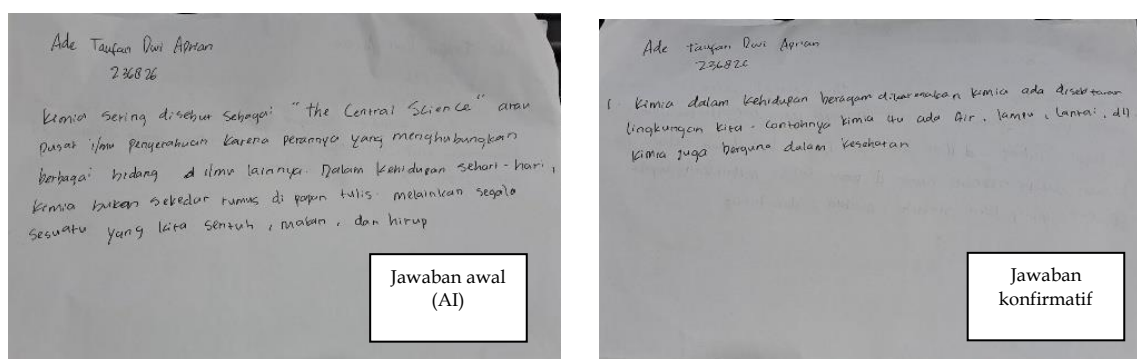 Ade Taufan Dwi Aprian
236826
Kimia sering disebut sebagai "The Central Science" atau
pusat ilmu pengetahuan karena perannya yang menghubungkan
berbagai bidang ilmu lainnya. Dalam kehidupan sehari-hari,
kimia bukan sekedar rumus di papan tulis. melainkan segala
sesuatu yang kita sentuh, makan, dan hirup
Jawaban awal
(AI)
Ade Taufan Dwi Aprian
236826
1. Kimia dalam kehidupan beragam dikarenakan kimia ada
lingkungan kita. Contohnya kimia itu ada Air, lampu, lantai, dll
kimia juga berguna dalam kesehatan
Jawaban
konfirmatif